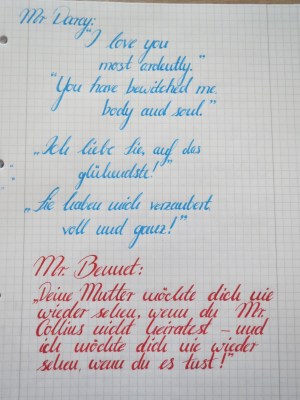 Mr. Darcy:
"I love you
most ardently."
"You have bewitched me
body and soul."
„Ich liebe Sie, auf das
glühendste!"
„Sie haben mich verzaubert
voll und ganz!"
Mr. Bennet:
„Deine Mutter möchte dich nie
wieder sehen, wenn du Mr.
Collins nicht heiratest – und
ich möchte dich nie wieder
sehen, wenn du es tust!"